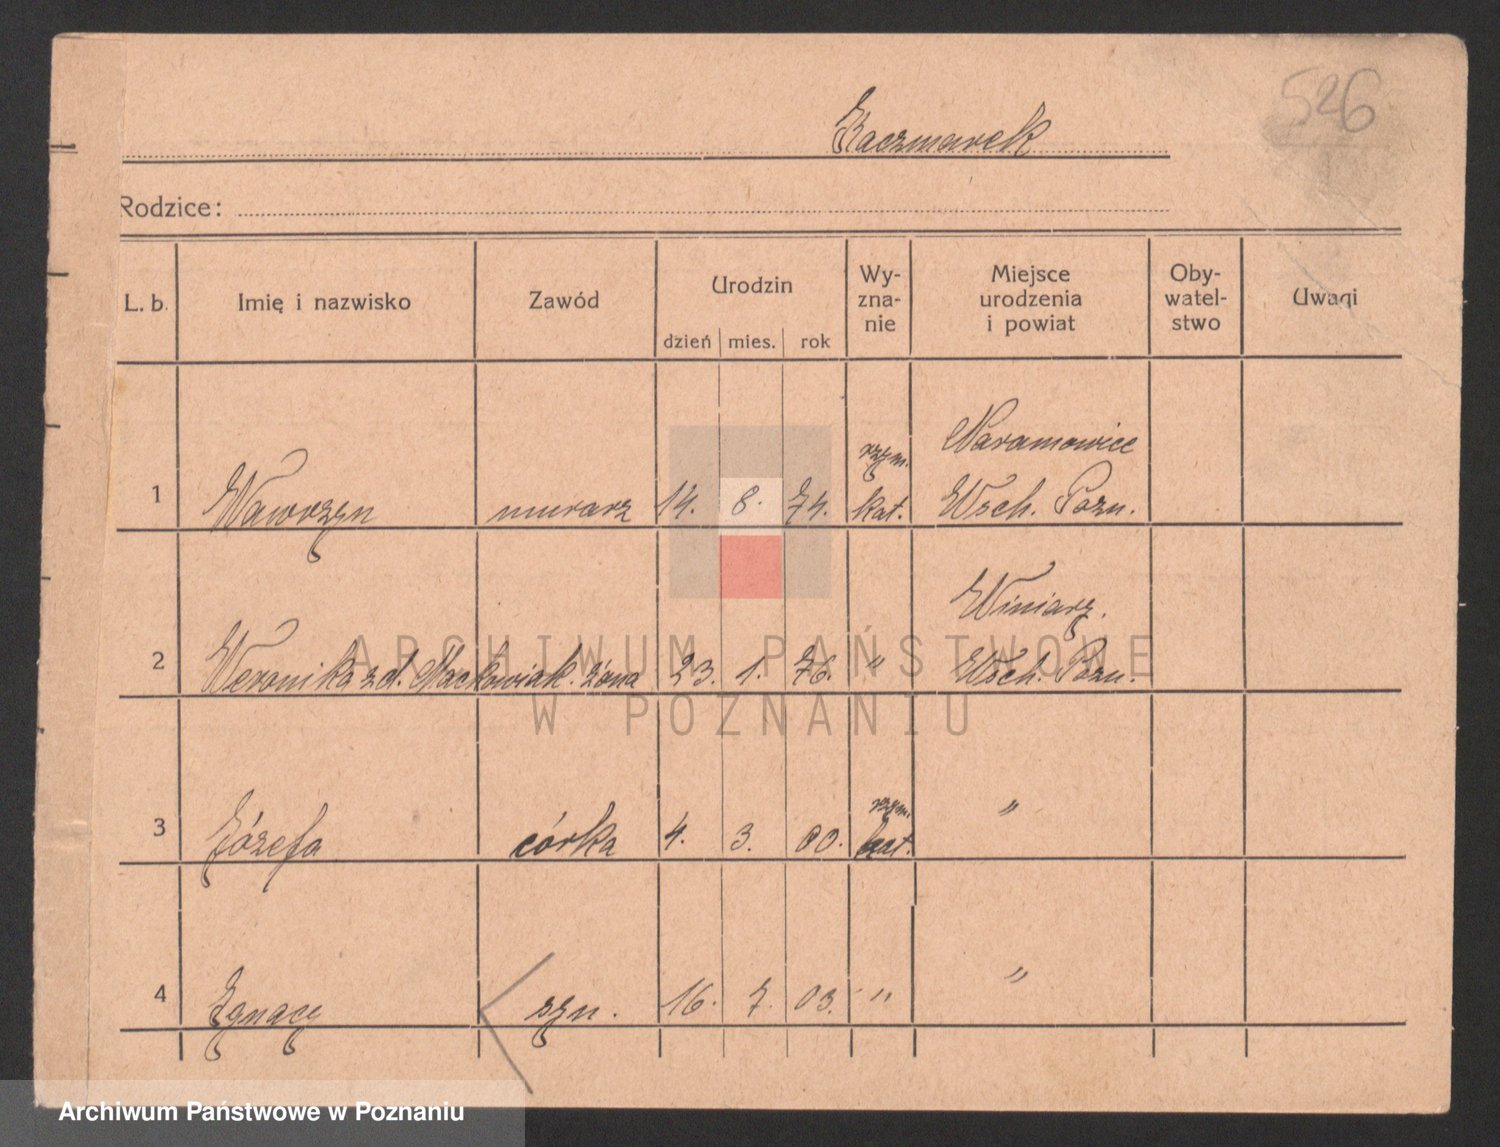 526
Kaczmarek
Rodzice:
L. b. Imię i nazwisko Zawód Urodzin dzień mies. rok Wy-zna-nie Miejsce urodzenia i powiat Oby-watel-stwo Uwagi
rzym. Naramowice
1 Wawrzyn murarz 14. 8. 74. kat. Wsch. Pozn.
Winiarz.
2 Weronika z d. Maćkowiak. żona 23. 1. 76. " Wsch. Pozn.
rzym.
3 Józefa córka 4. 3. 00. kat. "
4 Ignacy syn. 16. 7. 03. " "
ARCHIWUM PAŃSTWOWE
W POZNANIU
Archiwum Państwowe w Poznaniu